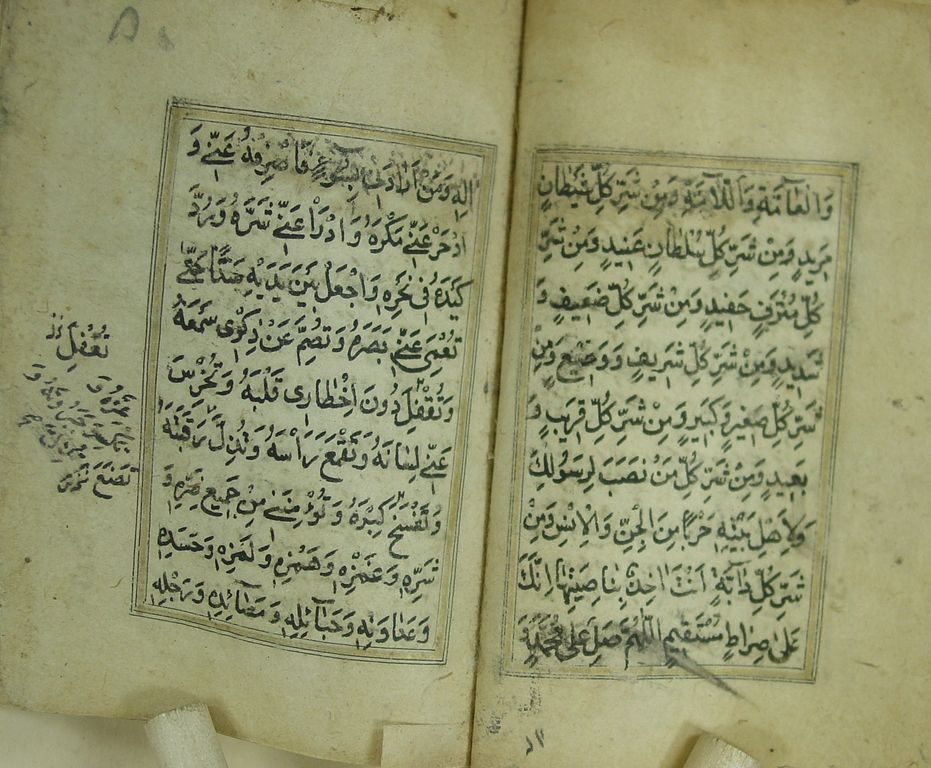 وَالْعَامَّةِ وَاللَّامَّةِ وَمِنْ شَرِّ كُلِّ شَيْطَانٍ
مَرِيدٍ وَمِنْ شَرِّ كُلِّ سُلْطَانٍ عَنِيدٍ وَمِنْ شَرِّ
كُلِّ مُتْرَفٍ حَفِيدٍ وَمِنْ شَرِّ كُلِّ ضَعِيفٍ وَ
شَدِيدٍ وَمِنْ شَرِّ كُلِّ شَرِيفٍ وَوَضِيعٍ وَمِنْ
شَرِّ كُلِّ صَغِيرٍ وَكَبِيرٍ وَمِنْ شَرِّ كُلِّ قَرِيبٍ وَ
بَعِيدٍ وَمِنْ شَرِّ كُلِّ مَنْ نَصَبَ لِرَسُولِكَ
وَلِأَهْلِ بَيْتِهِ حَرْبًا مِنَ الْجِنِّ وَالْاِنْسِ وَمِنْ
شَرِّ كُلِّ دَآبَّةٍ اَنْتَ اٰخِذٌ بِنَاصِيَتِهَا اِنَّكَ
عَلٰى صِرَاطٍ مُسْتَقِيمٍ اَللّٰهُمَّ صَلِّ عَلٰى مُحَمَّدٍ وَ
اٰلِهِ وَمَنْ اَرَادَنِى بِسُوءٍ فَاصْرِفْهُ عَنِّي وَ
ادْحَرْ عَنِّي مَكْرَهُ وَادْرَأْ عَنِّي شَرَّهُ وَرُدَّ
كَيْدَهُ فِى نَحْرِهِ وَاجْعَلْ بَيْنَ يَدَيْهِ سَدًّا حَتّٰى
تُعْمِىَ عَنِّي بَصَرَهُ وَتُصِمَّ عَنْ ذِكْرِى سَمْعَهُ
وَتُقْفِلَ دُونَ اِخْطَارِى قَلْبَهُ وَتُخْرِسَ
عَنِّي لِسَانَهُ وَتَقْمَعَ رَأْسَهُ وَتُذِلَّ رَقَبَتَهُ
وَتَفْسَخَ كِبْرَهُ وَتُؤْمِنَنِي مِنْ جَمِيعِ ضَرِّهِ وَ
شَرِّهِ وَغَمْزِهِ وَهَمْزِهِ وَلَمْزِهِ وَحَسَدِهِ
وَعَدَاوَتِهِ وَحَبَآئِلِهِ وَمَصَآئِدِهِ وَرَجِلِهِ
تُقْفِلَ